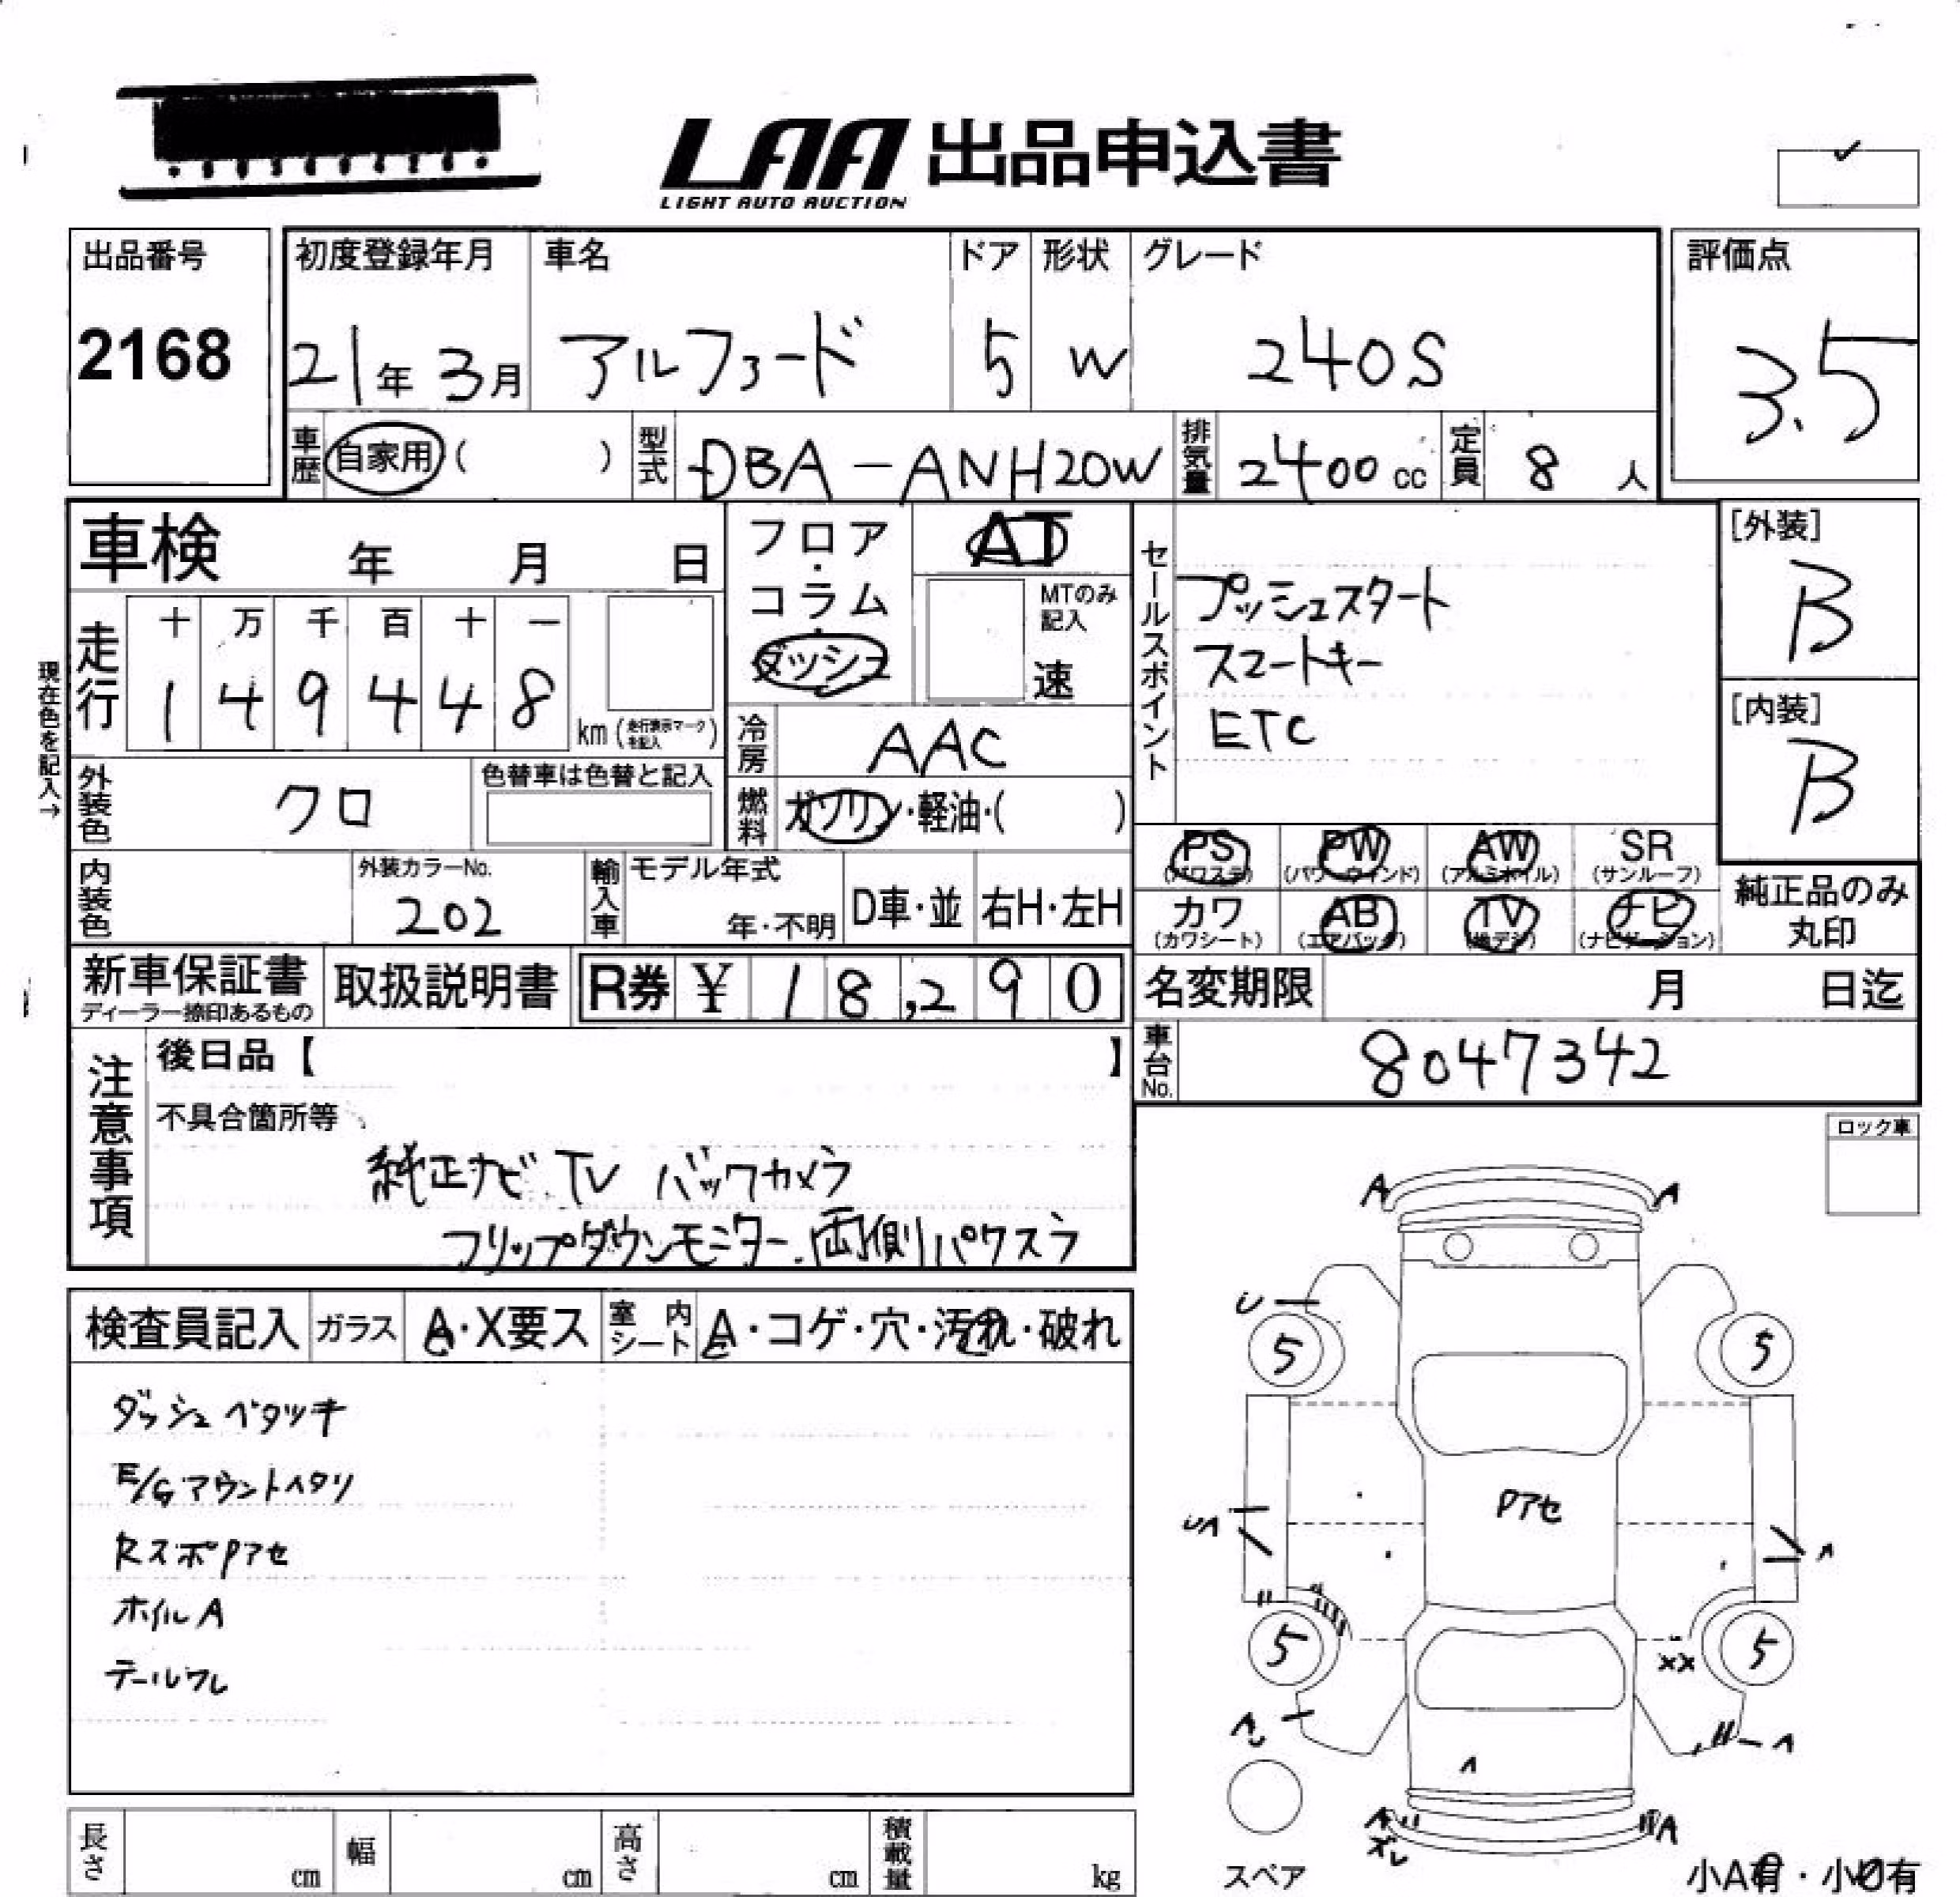 LAA 出品申込書
LIGHT AUTO AUCTION
出品番号
2168
初度登録年月
21年 3月
車名
アルファード
ドア
5
形状
W
グレード
240S
評価点
3.5
車歴 自家用 ( )
型式 DBA-ANH20W
排気量 2400 cc
定員 8 人
車検 年 月 日
フロア・コラム・ダッシュ
AT
MTのみ記入
速
セールスポイント
プッシュスタート
スマートキー
ETC
[外装]
B
[内装]
B
現在色を記入→
走行
十 万 千 百 十 一
1 4 9 4 4 8
km (走行表示マークを記入)
冷房 AAC
外装色 クロ
色替車は色替と記入
燃料 ガソリン・軽油・( )
PS (パワステ)
PW (パワーウィンド)
AW (アルミホイル)
SR (サンルーフ)
カワ (カワシート)
AB (エアバック)
TV (地デジ)
ナビ (ナビゲーション)
純正品のみ
丸印
内装色
外装カラーNo.
202
輸入車
モデル年式
年・不明
D車・並
右H・左H
新車保証書
ディーラー捺印あるもの
取扱説明書
R券 ¥ 18,290
名変期限 月 日迄
車台No. 8047342
注意事項
後日品【 】
不具合箇所等
純正ナビ TV バックカメラ
フリップダウンモニター.両側パワスラ
ロック車
検査員記入
ガラス A・X要ス
室内シート A・コゲ・穴・汚れ・破れ
ダッシュベタツキ
E/Gマウントヘタリ
RスポPアセ
ホイルA
テールワレ
A A
U
5 5
Pアセ
UA A
5 5
XX
A
A
A ズレ
A
スペア
小A有・小U有
長さ cm
幅 cm
高さ cm
積載量 kg